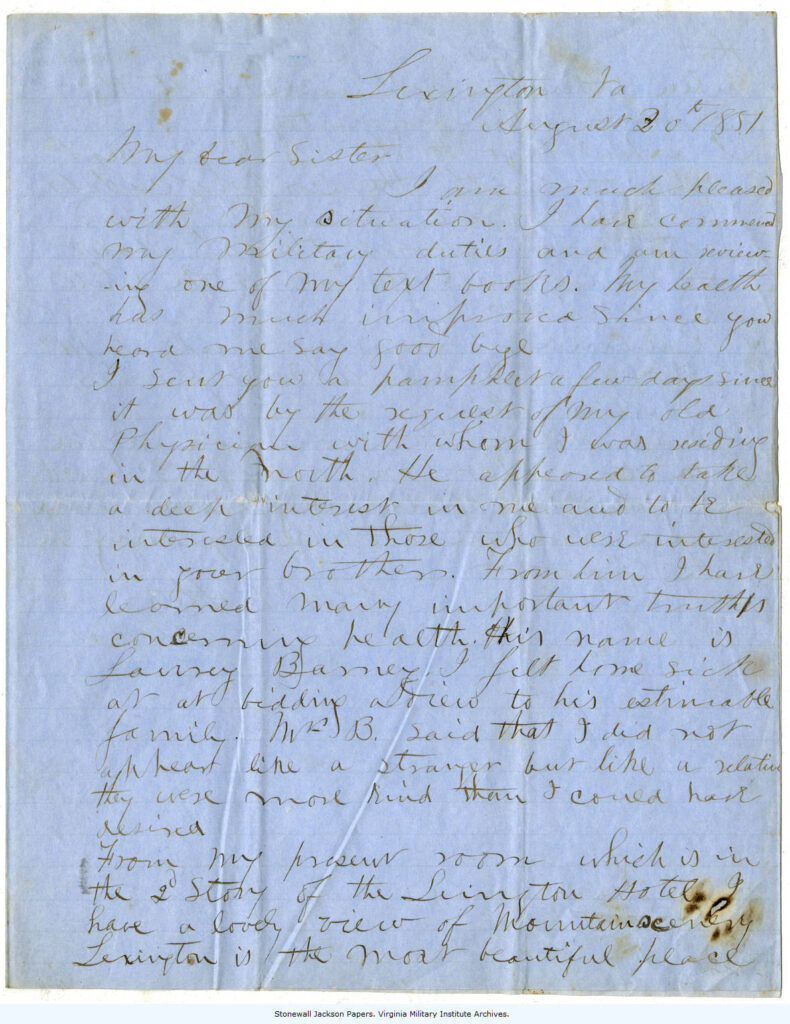 Lexington Va
August 20th 1851
My dear Sister
I am much pleased
with my situation. I have commenced
my Military duties and am review-
-ing one of my text books. My health
has much improved since you
heard me say good bye
I sent you a pamphlet a few days since
it was by the request of my old
Physician with whom I was residing
in the North. He appeared to take
a deep interest in me and to be
interested in those who were interested
in your brother. From him I have
learned many important truths
concerning health. His name is
Lowrey Barney I felt home sick
at at bidding adieu to his estimable
famile. Mrs B. said that I did not
appear like a stranger but like a relative
they were more kind than I could have
desired
From my present room which is in
the 2d Story of the Lexington Hotel I
have a lovely view of Mountain scenery
Lexington is the most beautiful place
Stonewall Jackson Papers. Virginia Military Institute Archives.